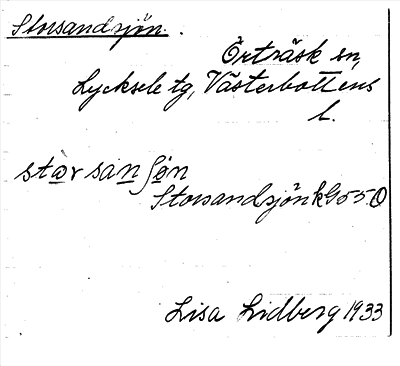 Storsandsjön.
Örträsk sn,
Lycksele tg, Västerbottens
l.
star san ʃøn
Storsandsjön kG 55.O
Lisa Lidberg 1933